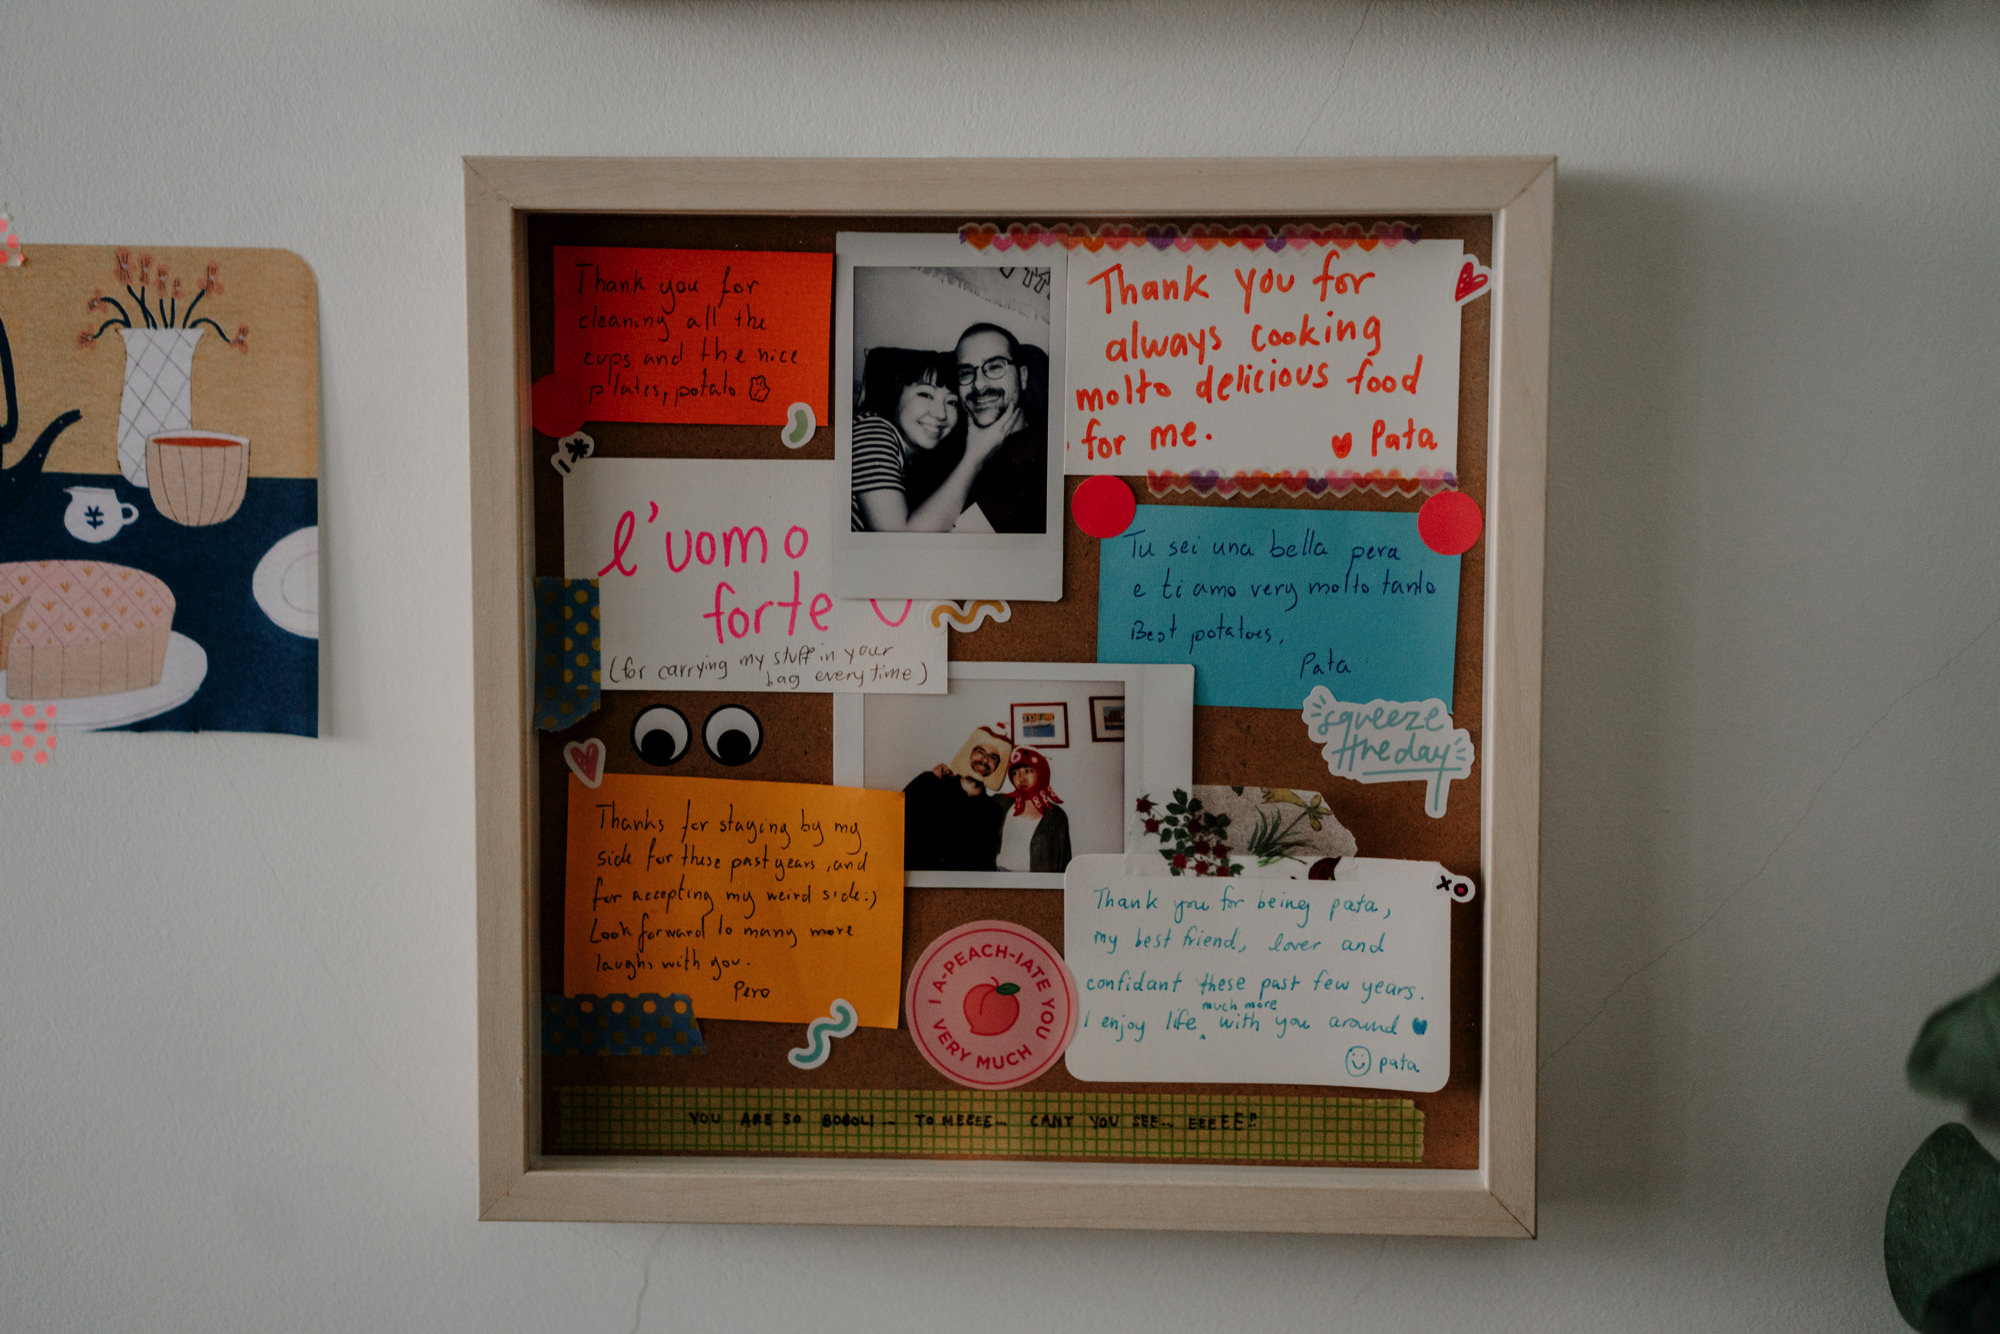 Thank you for
cleaning all the
cups and the nice
plates, potato
Thank you for
always cooking
molto delicious food
for me.
♥ Pata
l'uomo
forte
(for carrying my stuff in your
bag everytime)
Tu sei una bella pera
e ti amo very molto tanto
Best potatoes.
Pata
squeeze
the day
Thanks for staying by my
side for these past years, and
for accepting my weird side:)
Look forward to many more
laughs with you.
Pero
I A-PEACH-IATE YOU
VERY MUCH
XO
Thank you for being pata,
my best friend, lover and
confidant these past few years.
much more
I enjoy life ‸ with you around ♥
pata
YOU ARE SO BOBOLI... TO MEEEE... CANT YOU SEE... EEEEE!!